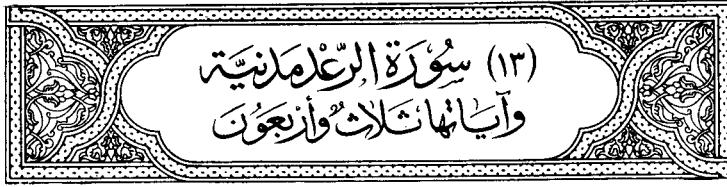 (١٣) سُوْرَة الرَّعْد مَدَنِيَّة
وَآيَاتها ثَلَاثٌ وَأَرْبَعُوْنَ